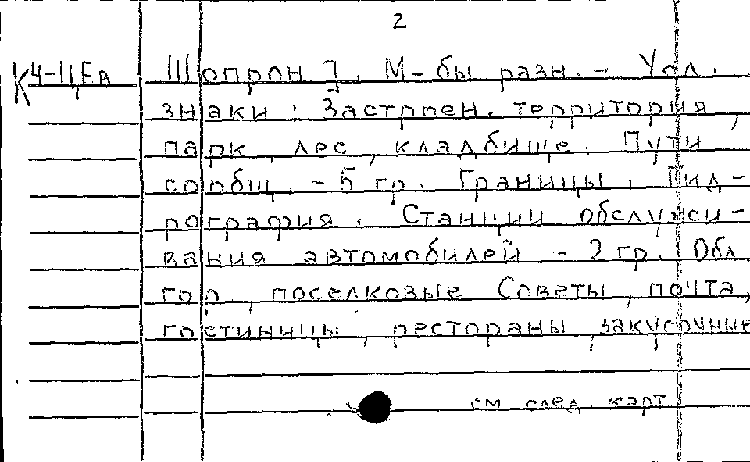 2
К4-ЦЕв Шопрон]. М-бы разн. - Усл.
знаки: Застроен. территория,
парк, лес, кладбище. Пути
сообщ. - 5 гр. Границы. Гид-
рография. Станции обслужи-
вания автомобилей - 2 гр. Обл.
гор., поселковые Советы, почта,
гостиницы, рестораны, закусочные
см. след. карт.